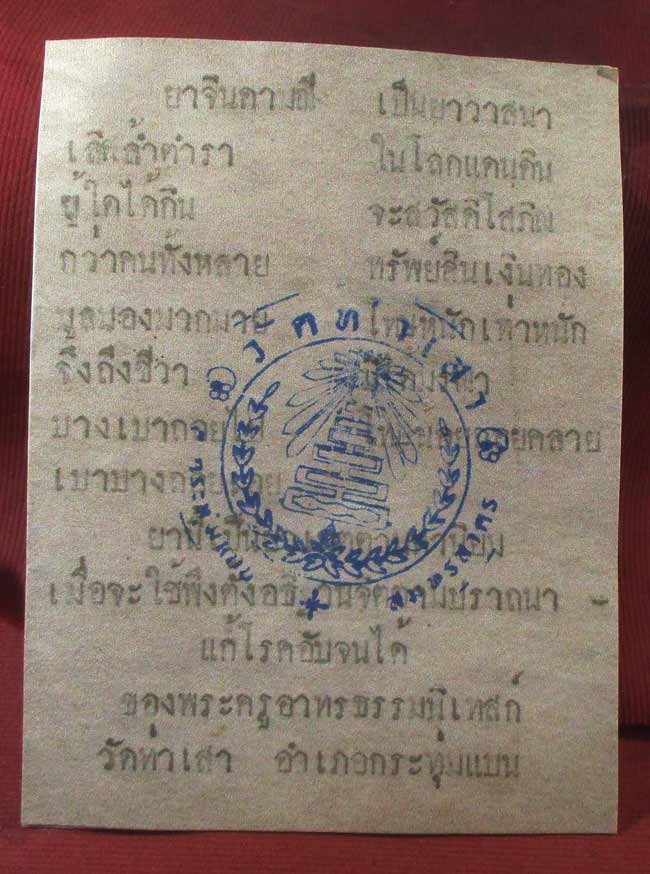 ยาจินดามณี เป็นยาวาสนา
เลิศล้ำตำรา ในโลกแดนดิน
ผู้ใดได้กิน จะสวัสดิโสภิณ
กว่าคนทั้งหลาย ทรัพย์สินเงินทอง
มูลมองมากมาย โทษหนักเท่าหนัก
จึงถึงชีวา
บางเบา คลาย
เบาบาง
ยานี้เป็น นิยม
เมื่อจะใช้พึงตั้งอธิ ปรารถนา
แก้โรคอับจนได้
ของพระครูอาทรธรรมนิเทสก์
วัดท่าเสา อำเภอกระทุ่มแบน
วัดท่าเสา
สมุทรสาคร